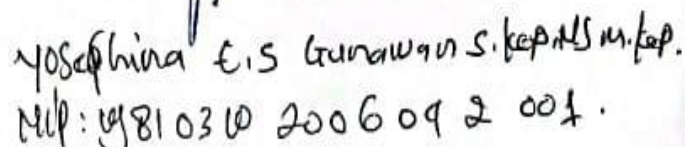 Yosephina E.S Gunawan S.Kep.NS M.Kep.
NIP: 19810310 200604 2 001.